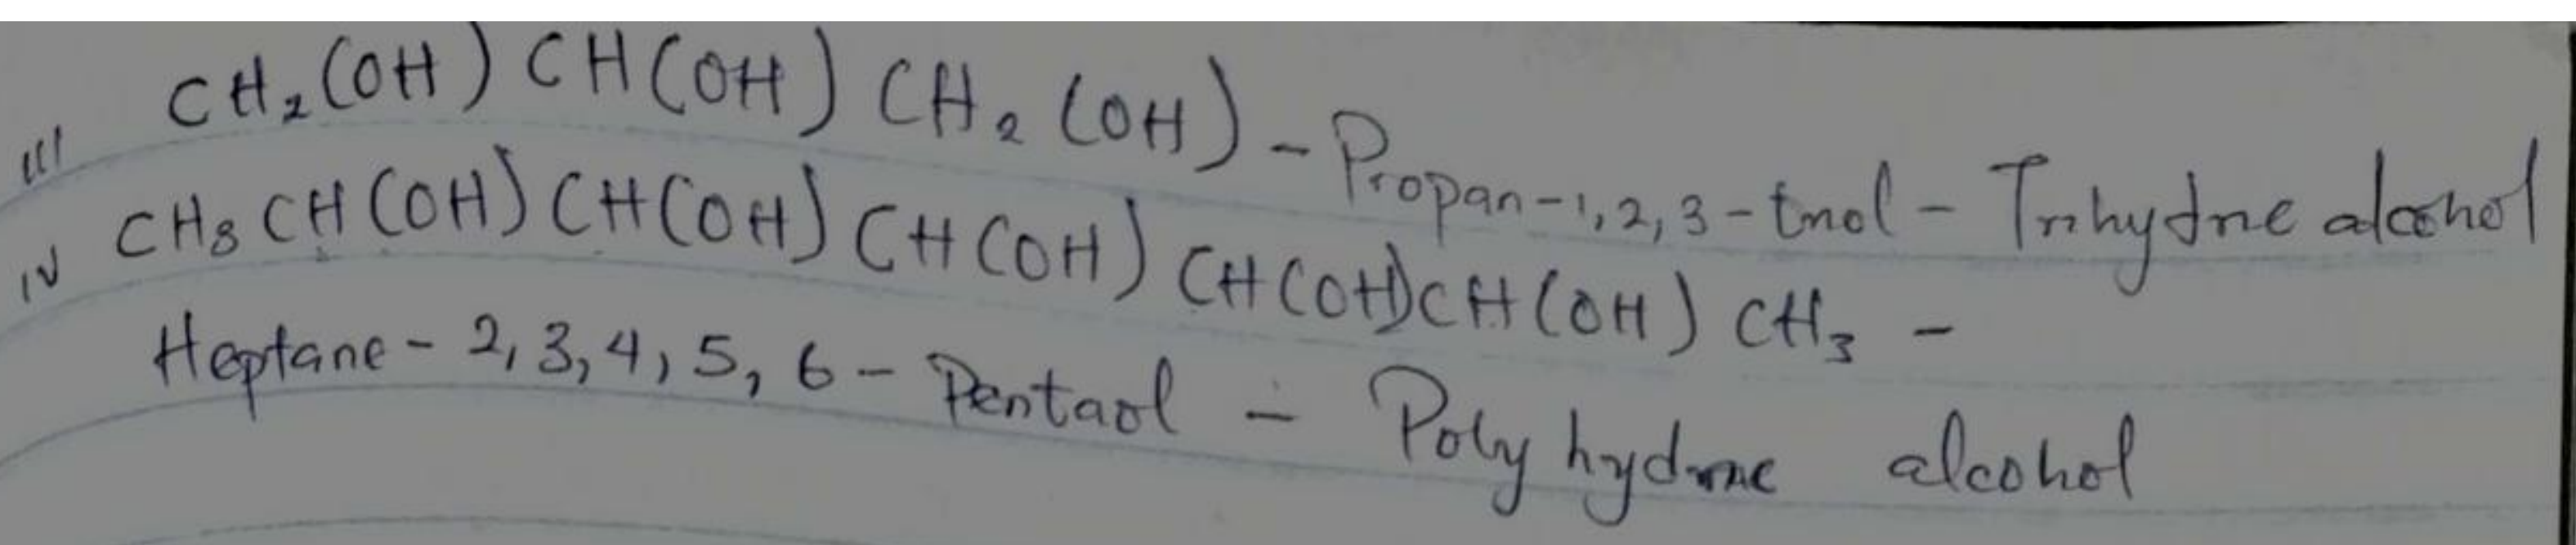 III CH₂(OH) CH(OH) CH₂(OH) - Propan-1,2,3-triol - Trihydric alcohol
IV CH₃CH(OH) CH(OH) CH(OH) CH(OH)CH(OH) CH₃ -
Heptane - 2,3,4,5,6 - Pentaol - Polyhydric alcohol